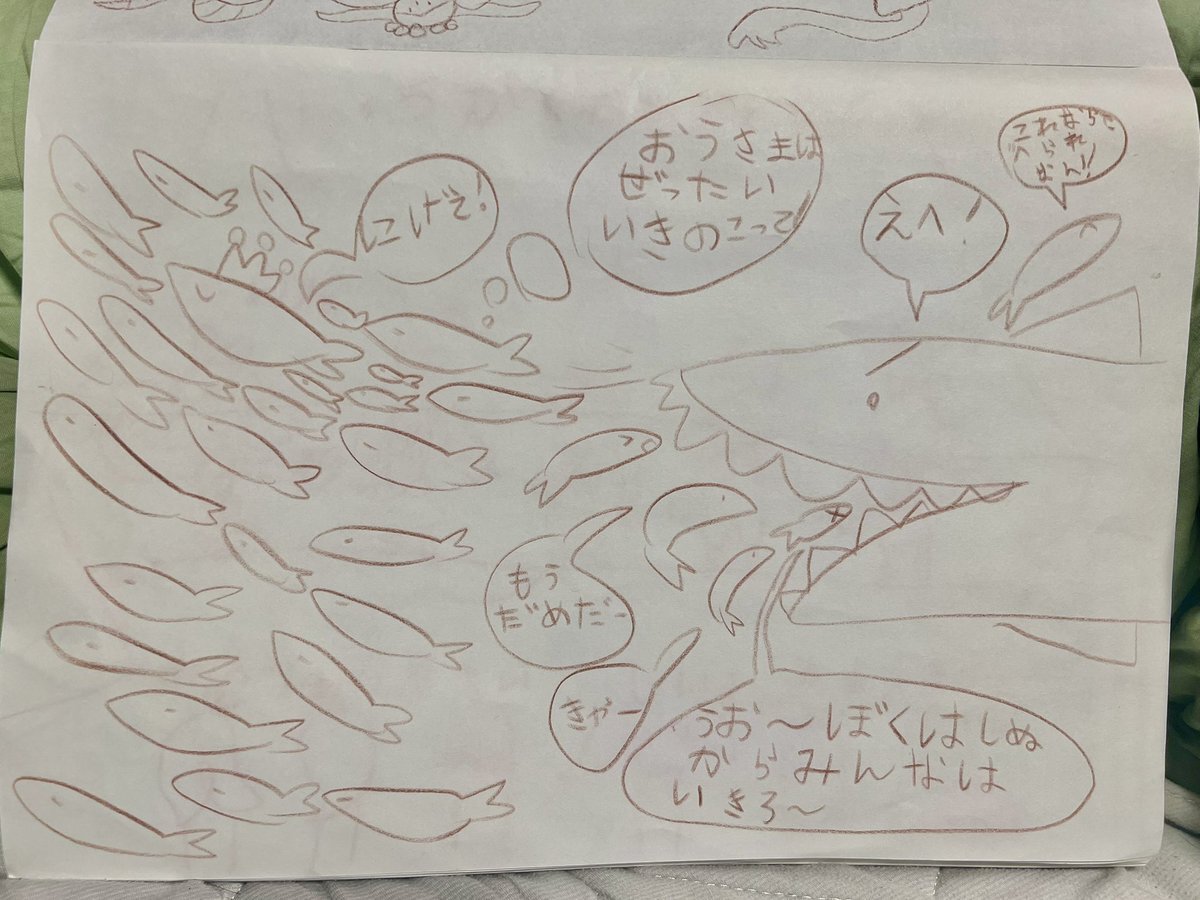 にげぞ!
おうさまは
ぜったい
いきのこって
えへ!
これなら
られ
もう
だめだー
きゃー
うお〜ぼくはしぬ
からみんなは
いきろ〜